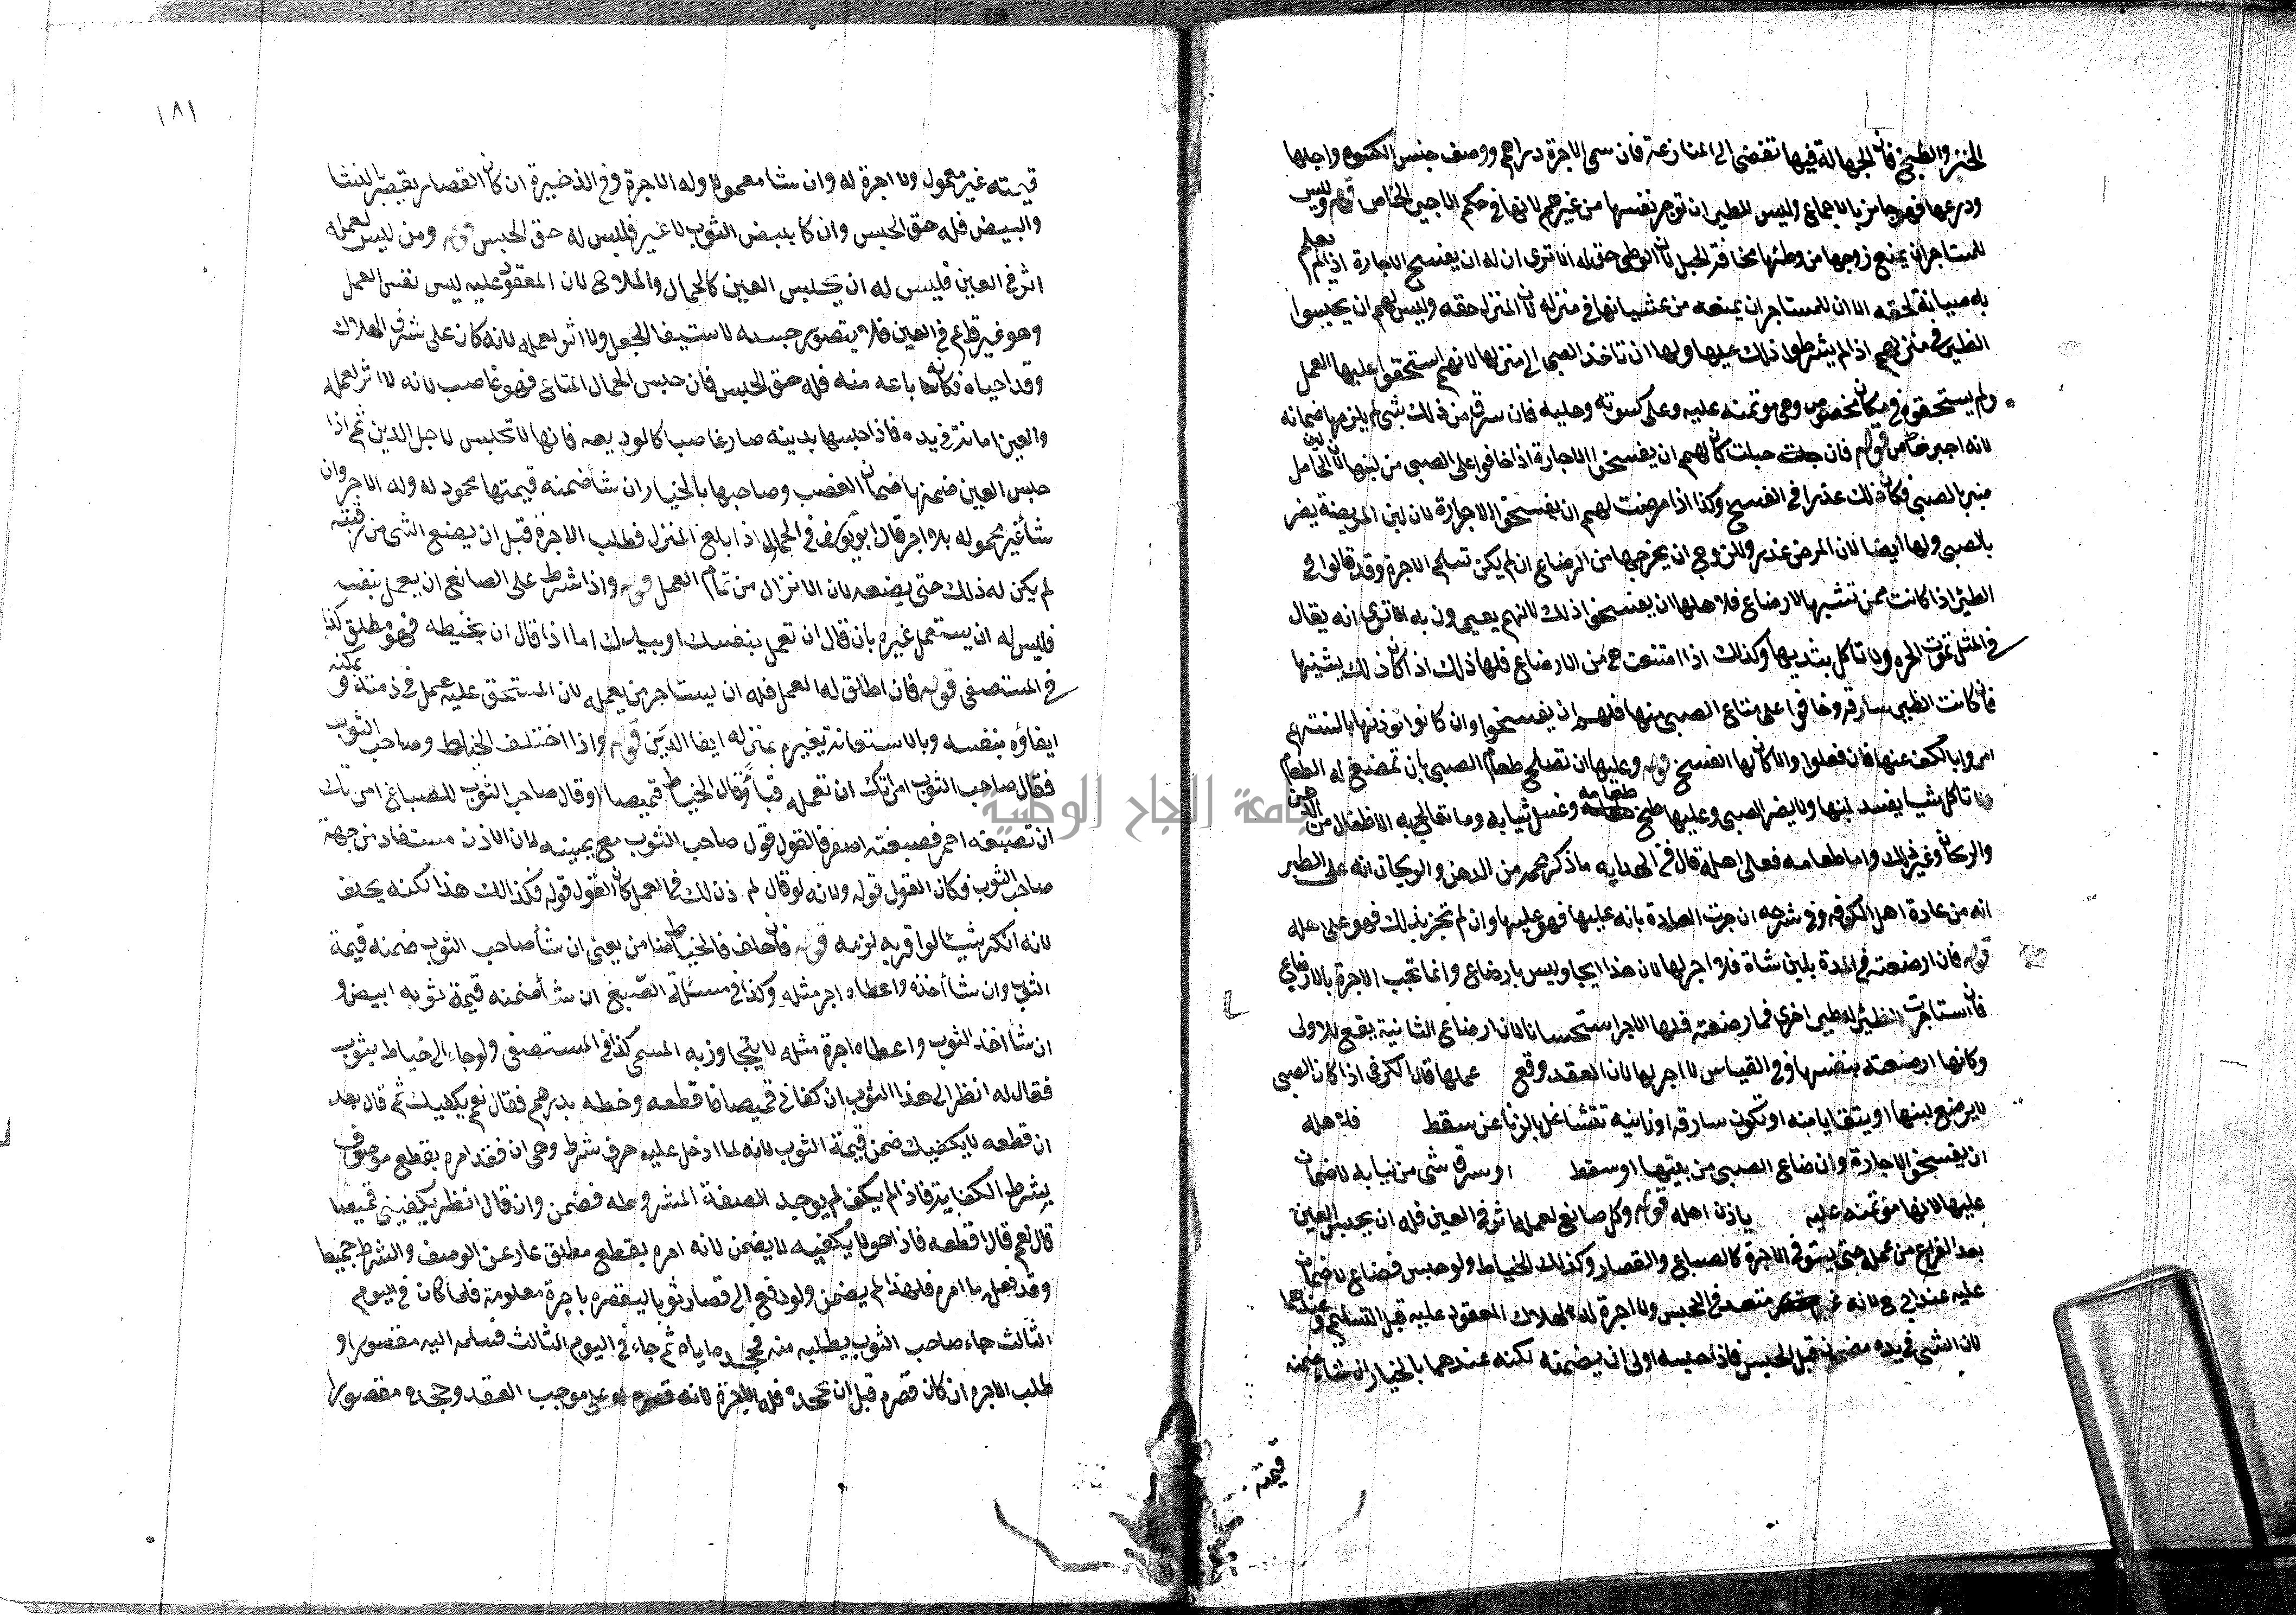 الخبز والطبخ فان الجهالة فيها تفضي الى المنازعة فان سمى الاجرة دراهم ووصف جنس الكسوة واجلها
وذرعها فهو جائز بالاجماع وليس للظير ان توجر نفسها من غيرهم لانها في حكم الاجير الخاص قوله وليس
للمستاجر ان يمنع زوجها من وطئها مخافة الحبل لان الوطى حق له الا ترى ان له ان يفسخ الاجارة اذا لم يعلم
به صيانة لحقه الا ان للمستاجر ان يمنعه من غشيانها في منزله لان المنزل حقه وليس لهم ان يحبسوا
الظير في منزلهم اذا لم يشترطوا ذلك عليها ولها ان تاخذ الصبي الى منزلها لانهم استحقوا عليها العمل
ولم يستحقوه في مكان مخصوص وهي موتمنه عليه وعلى كسوته وحليه فان سرق من ذلك شي لم يلزمها ضمانه
لانه اجير خاص قوله فان حبلت كان لهم ان يفسخوا الاجارة اذا خافوا على الصبي من لبنها لان لبن الحامل
يضر بالصبي فكان ذلك عذرا في الفسخ وكذا اذا مرضت لهم ان يفسخوا الاجارة لان لبن المريضة يضر
بالصبي ولها ايضا لان المرض عذر وللزوج ان يخرجها من الرضاع ان لم يكن تسلم الاجرة وقد قالوا في
الظير اذا كانت ممن تشينها الارضاع فلاهلها ان يفسخوا ذلك لانهم يعيرون به الا ترى انه يقال
في المثل تموت الحره ولا تاكل بثديها وكذلك اذا امتنعت هي من الارضاع فلها ذلك اذا كان ذلك يشينها
فان كانت الظير سارقه وخافوا على متاع الصبي منها فلهم ان يفسخوا وان كانوا يوذنها بالسنتهم
امروا بالكف عنها فان فعلوا والا كان لها الفسخ قوله وعليها ان تصلح طعام الصبي بان تمضغ له الطعام
ولا تاكل شيا يفسد لبنها ولا يضر الصبي وعليها طبخ طعامه وغسل ثيابه وما تعالج به الاطفال من الدهن
والريحان وغير ذلك واما طعامه فعلى اهله قال في الهدايه ما ذكر محمد من الدهن والريحان انه على الظير
انه من عادة اهل الكوفه وفي شرحه ان جرت العادة بانه عليها فهو عليها وان لم تجر بذلك فهو على اهله
قوله فان ارضعته في المدة بلبن شاة فلا اجر لها لان هذا ايجار وليس بارضاع وانما تجب الاجرة بالارضاع
فان استاجرت الظير له ظير اخرى فارضعته فلها الاجر استحسانا لان ارضاع الثانية يقع للاولى
وكانها ارضعته بنفسها وفي القياس لا اجر لها لان العقد وقع عملها قال الكرخي اذا كان الصبي
لا يرضع لبنها او يتقايا منه او تكون سارقه او زانيه تتشاغل بالزنا عن سقط فلاهله
ان يفسخوا الاجارة وان ضاع الصبي من بيتها او سقط او سرق شي من ثيابه لا ضمان
عليها لانها موتمنه عليه باذن اهله قوله وكل صانع لعمله اثر في العين فله ان يحبس العين
بعد الفراغ من عمله حتى يستوفي الاجرة كالصباغ والقصار وكذلك الخياط ولو حبس فضاع لا ضمان
عليه عند ابي ح لانه غير متعد في الحبس ولا اجرة له لهلاك المعقود عليه قبل التسليم وعندهما
لان الشي في يده مضمون قبل الحبس فاذا حبسه اولى ان يضمنه لكنه عندهما بالخيار ان شاء ضمنه
قيمته
١٨١
قيمته غير معمول ولا اجرة له وان شا معمولا وله الاجرة وفي الذخيرة ان كان القصار يقصر بالنشا
والبيض فله حق الحبس وان كان يبيض الثوب لا غير فليس له حق الحبس قوله ومن ليس لعمله
اثر في العين فليس له ان يحبس العين كالحمال والملاح لان المعقود عليه ليس نفس العمل
وهو غير قايم في العين فلا يتصور حبسه لاستيفا الجعل ولا اثر لعمله لانه كان على شرف الهلاك
وقد احياه فكانه باعه منه فله حق الحبس فان حبس الحمال المتاع فهو غاصب لانه لا اثر لعمله
والعين امانة في يده فاذا حبسها بدينه صار غاصبا كالوديعه فانها لا تحبس لاجل الدين ثم اذا
حبس العين ضمنها ضمان الغصب وصاحبها بالخيار ان شا ضمنه قيمتها محموله وله الاجر وان
شا غير محموله بلا اجر قال ابو يوسف في الحمال اذا بلغ المنزل فطلب الاجرة قبل ان يضع الشي من رقبته
لم يكن له ذلك حتى يضعه لان الانزال من تمام العمل قوله واذا شرط على الصانع ان يعمل بنفسه
فليس له ان يستعمل غيره بان قال ان تعمل بنفسك او بيدك اما اذا قال ان يخيطه فهو مطلق كذا
في المستصفى قوله فان اطلق له العمل فله ان يستاجر من يعمله لان المستحق عليه عمل في ذمته ويمكنه
ايفاؤه بنفسه وبالاستعانة بغيره بمنزله ايفا الدين قوله واذا اختلف الخياط وصاحب الثوب
فقال صاحب الثوب امرتك ان تعمله قباء وقال الخياط قميصا او قال صاحب الثوب للصباغ امرتك
ان تصبغه احمر فصبغته اصفر فالقول قول صاحب الثوب مع يمينه لان الاذن مستفاد من جهة
صاحب الثوب فكان القول قوله ولانه لو قال لم ذن لك في العمل كان القول قوله فكذلك هذا لكنه يحلف
لانه انكر شيئا لو اقر به لزمه قوله فان حلف فالخياط ضامن يعني ان شا صاحب الثوب ضمنه قيمة
الثوب وان شا اخذه واعطاه اجر مثله وكذا في مسئلة الصبغ ان شا ضمنه قيمة ثوبه ابيض و
ان شا اخذ الثوب واعطاه اجرة مثله لا يتجاوز به المسمى كذا في المستصفى ولو جاء الى خياط بثوب
فقال له انظر الى هذا الثوب ان كفاني قميصا فاقطعه وخطه بدرهم فقال نعم يكفيك ثم قال بعد
ان قطعه لا يكفيك ضمن قيمة الثوب لانه لما ادخل عليه حرف شرط وهي ان فقد امره بقطع موصوف
بشرط الكفاية فاذا لم يكف لم يوجد الصفة المشروطه فضمن وان قال انظر يكفيني قميصا
قال نعم قال اقطعه فاذا هو لا يكفيه لا يضمن لانه امره بقطع مطلق عار عن الوصف والشرط جميعا
وقد فعل ما امره فلهذا لم يضمن ولو دفع الى قصار ثوبا ليقصره باجرة معلومة فلما كان في اليوم
الثالث جاء صاحب الثوب يطلبه منه فجحده اياه ثم جاء في اليوم الثالث فسلمه اليه مقصورا و
طلب الاجر ان كان قصره قبل ان يجحده فله الاجرة لانه قصره على موجب العقد وجحده مقصورا
جامعة النجاح الوطنية